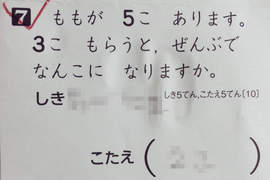 7 ももが 5こ あります。
3こ もらうと，ぜんぶで
なんこに なりますか。
しき
しき5てん，こたえ5てん〔10〕
こたえ（ ）